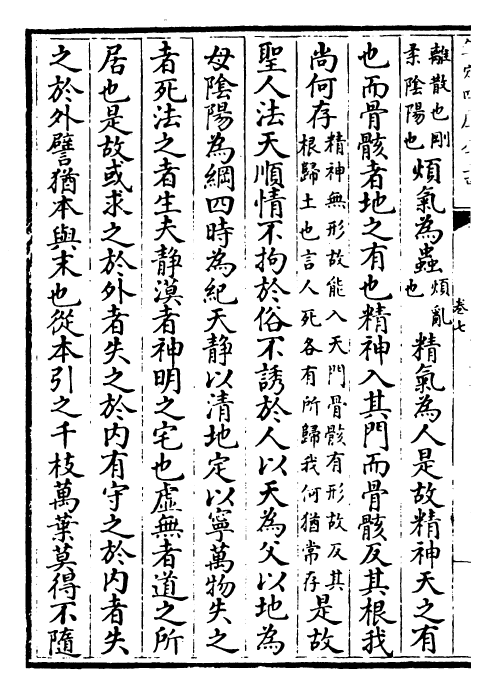 卷七
離散也剛柔隂陽也煩氣為蟲煩亂也精氣為人是故精神天之有
也而骨骸者地之有也精神入其門而骨骸反其根我
尚何存精神無形故能入天門骨骸有形故反其根歸土也言人死各有所歸我何猶常存是故
聖人法天順情不拘於俗不誘於人以天為父以地為
母隂陽為綱四時為紀天静以清地定以寧萬物失之
者死法之者生夫静漠者神明之宅也虛無者道之所
居也是故或求之於外者失之於内有守之於内者失
之於外譬猶本與末也從本引之千枝萬葉莫得不隨